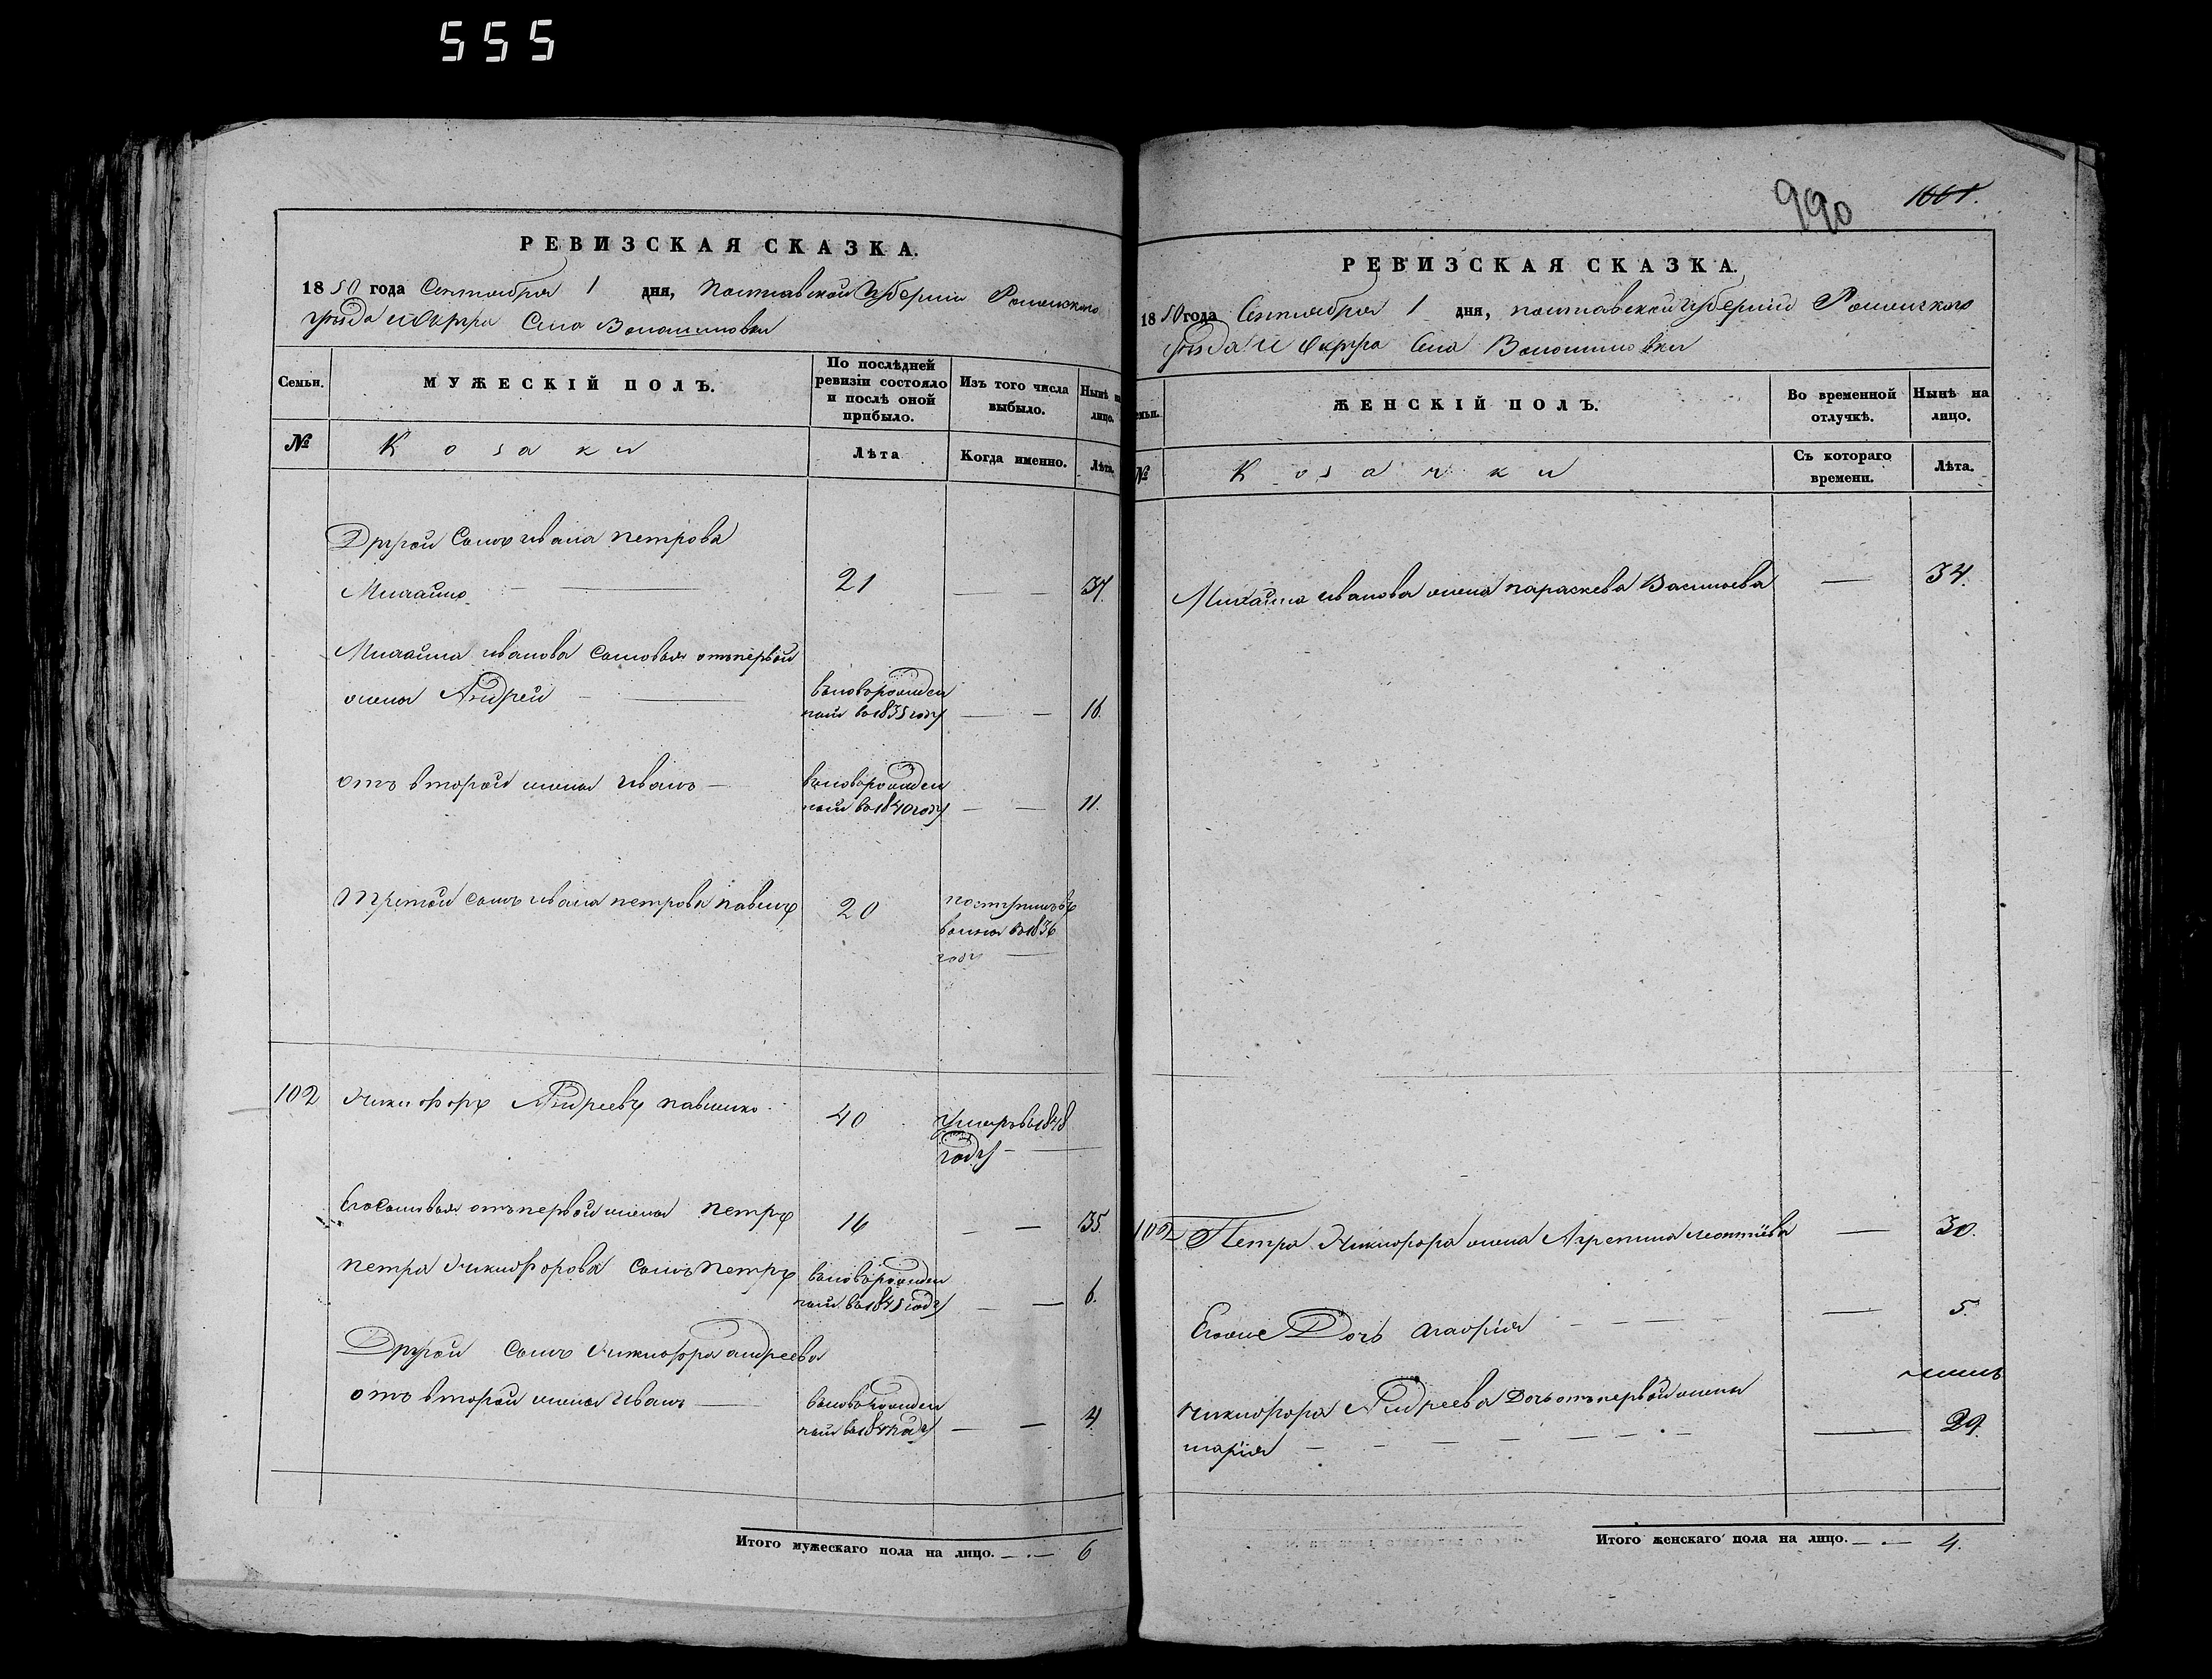 555
990
1001.
РЕВИЗСКАЯ СКАЗКА.
1850 года Сентября 1 дня, Полтавской Губернии Роменского
уезда и Округа Села Волошиновки
Семьи.
МУЖЕСКІЙ ПОЛЪ.
По послѣдней ревизіи состояло и послѣ оной прибыло.
Изъ того числа выбыло.
Нынѣ на лицо.
№
Козаки
Лѣта
Когда именно.
Лѣта.
Другой сынъ ивана петрова
Михайло 21 — — 37.
Михайла иванова сыновья отъ первой
жены Андрей — вновьрожден
ный в 1835 году — — 16.
отъ второй жены иванъ — вновьрожден
ный в 1840 году — — 11.
Третий сынъ ивана петрова павелъ 20 поступилъ въ
в 1836
году —
102 Никифоръ Андреевъ павленко 40 умеръ в 1848
году —
Его сыновья от первой жены петръ 16 — — 35.
петра Никифорова сынъ петръ вновьрожден
ный в 1845 году — — 6.
Другой сынъ Никифора андреева
отъ второй жены иванъ — вновьрожден
ный в 1847 году — — 4.
Итого мужескаго пола на лицо. — 6
РЕВИЗСКАЯ СКАЗКА.
1850 года Сентября 1 дня, полтавской губернии Роменского
уезда и Округа Села Волошиновки
Семьи.
ЖЕНСКІЙ ПОЛЪ.
Во временной отлучкѣ.
Нынѣ на лицо.
№
Козачки
Съ котораго времени.
Лѣта.
Михайла иванова жена параскева Васильева — 34.
102 Петра Никифора жена Агрепина леонтіева — 30.
Егоже Дочь — 5.
никифора Андреева Дочь отъ первой жены
марія — 29.
Итого женскаго пола на лицо. — 4.